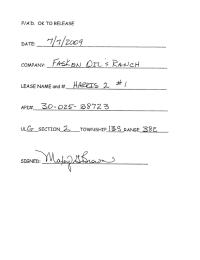 P/A'D. OK TO RELEASE
DATE: 7/7/2009
COMPANY: FASKEN OIL & RANCH
LEASE NAME and #: HARRIS 2 #1
API#: 30-025-28723
UL G SECTION 2 TOWNSHIP 13S RANGE 38E
SIGNED: